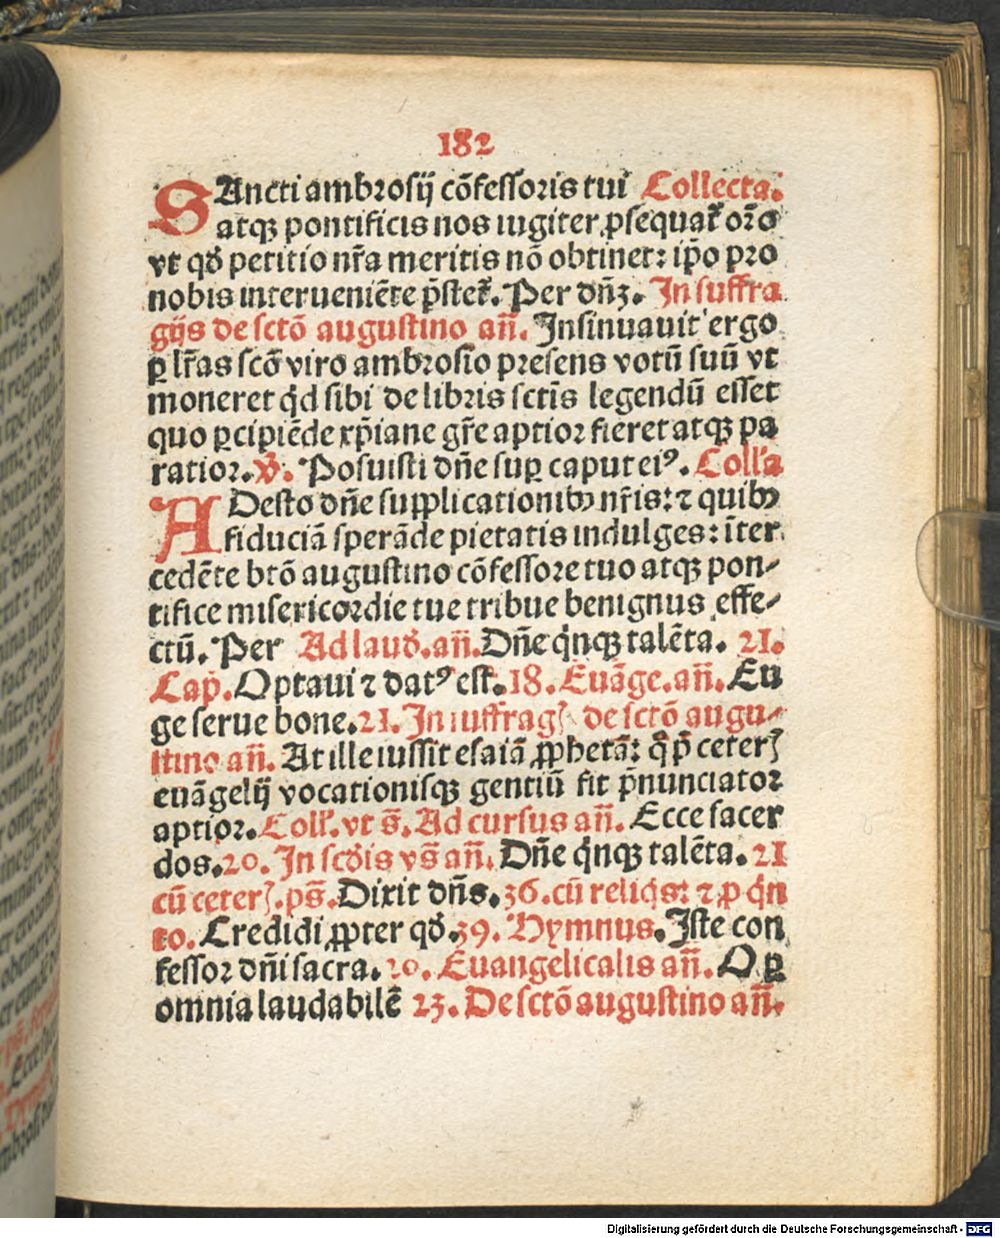 182
SAncti ambrosij cōfessoris tui Collecta.
atqꝫ pontificis nos iugiter ꝓsequat᷑ or̄o
vt qd̄ petitio nr̄a meritis nō obtinet: ip̄o pro
nobis interueniēte p̄stet᷑. Per dn̄ꝫ. In suffra
gijs de sctō augustino an̄. Insinuauit ergo
ꝑ lr̄as scō viro ambrosio presens votū suū vt
moneret qd̍ sibi de libris sctīs legendū esset
quo ꝑcipiēde xp̄iane gr̄e aptior fieret atqꝫ pa
ratior. v̄. Posuisti dn̄e suꝑ caput eiꝰ. Coll'a
ADesto dn̄e supplicationibꝫ nr̄is: ⁊ quibꝫ
fiduciā sperāde pietatis indulges: īter
cedēte btō augustino cōfessore tuo atqꝫ pon⸗
tifice misericordie tue tribue benignus effe⸗
ctū. Per Ad laud̄. an̄. Dn̄e qn̍qꝫ talēta. 21.
Cap̄. Optaui ⁊ datꝰ est. 18. Euāge. an̄. Eu
ge serue bone. 21. In suffragꝝ de sctō augu⸗
stino an̄. At ille iussit esaiā ꝓphetā: q̄ p̄ ceterꝝ
euāgelij vocationisqꝫ gentiū fit p̄nunciator
aptior. Coll'. vt s̄. Ad cursus an̄. Ecce sacer
dos. 20. In scd̄is vs̄ an̄. Dn̄e qn̍qꝫ talēta. 21
cū ceterꝝ. ps̄. Dixit dn̄s. 36. cū reliqs̍: ⁊ ꝓ qn̍
to. Credidi ꝓpter qd̄. 39. Hymnus. Iste con
fessor dn̄i sacra. 20. Euangelicalis an̄. O ꝑ
omnia laudabilē 23. De sctō augustino an̄.
Digitalisierung gefördert durch die Deutsche Forschungsgemeinschaft - DFG